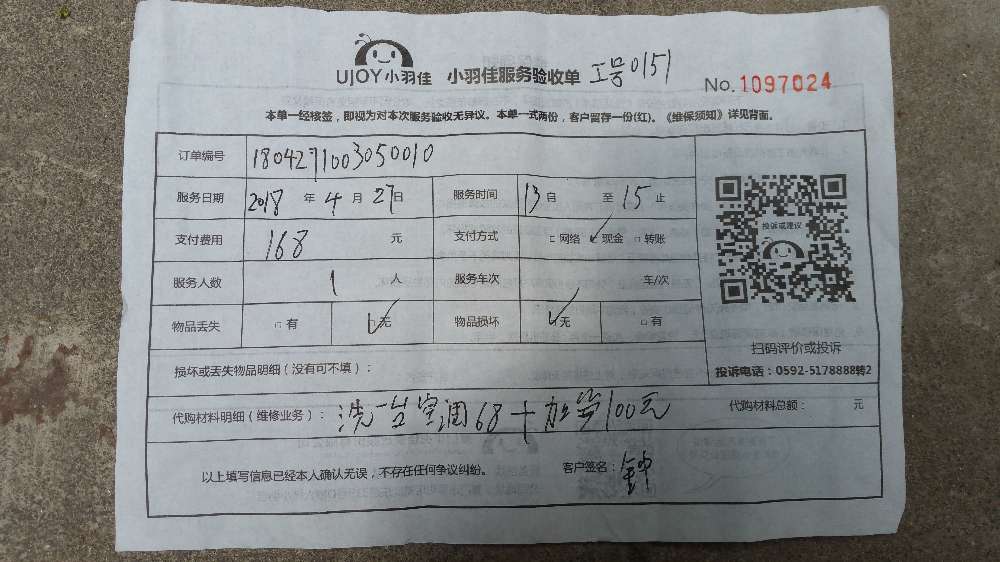 UJOY小羽佳 小羽佳服务验收单 工号0151
No. 1097024
本单一经核签，即视为对本次服务验收无异议。本单一式两份，客户留存一份(红)。《维保须知》详见背面。
订单编号 1804271003050010
服务日期 2018 年 4 月 27 日 服务时间 13 自 至 15 止
支付费用 168 元 支付方式 □网络 ✓现金 □转账
服务人数 1 人 服务车次 车/次
物品丢失 □有 ☑无 物品损坏 ☑无 □有
投诉或建议
扫码评价或投诉
投诉电话：0592-5178888转2
损坏或丢失物品明细（没有可不填）：
代购材料明细（维修业务）： 洗一台空调68+加  100元 代购材料总额： 元
以上填写信息已经本人确认无误，不存在任何争议纠纷。 客户签名：钟